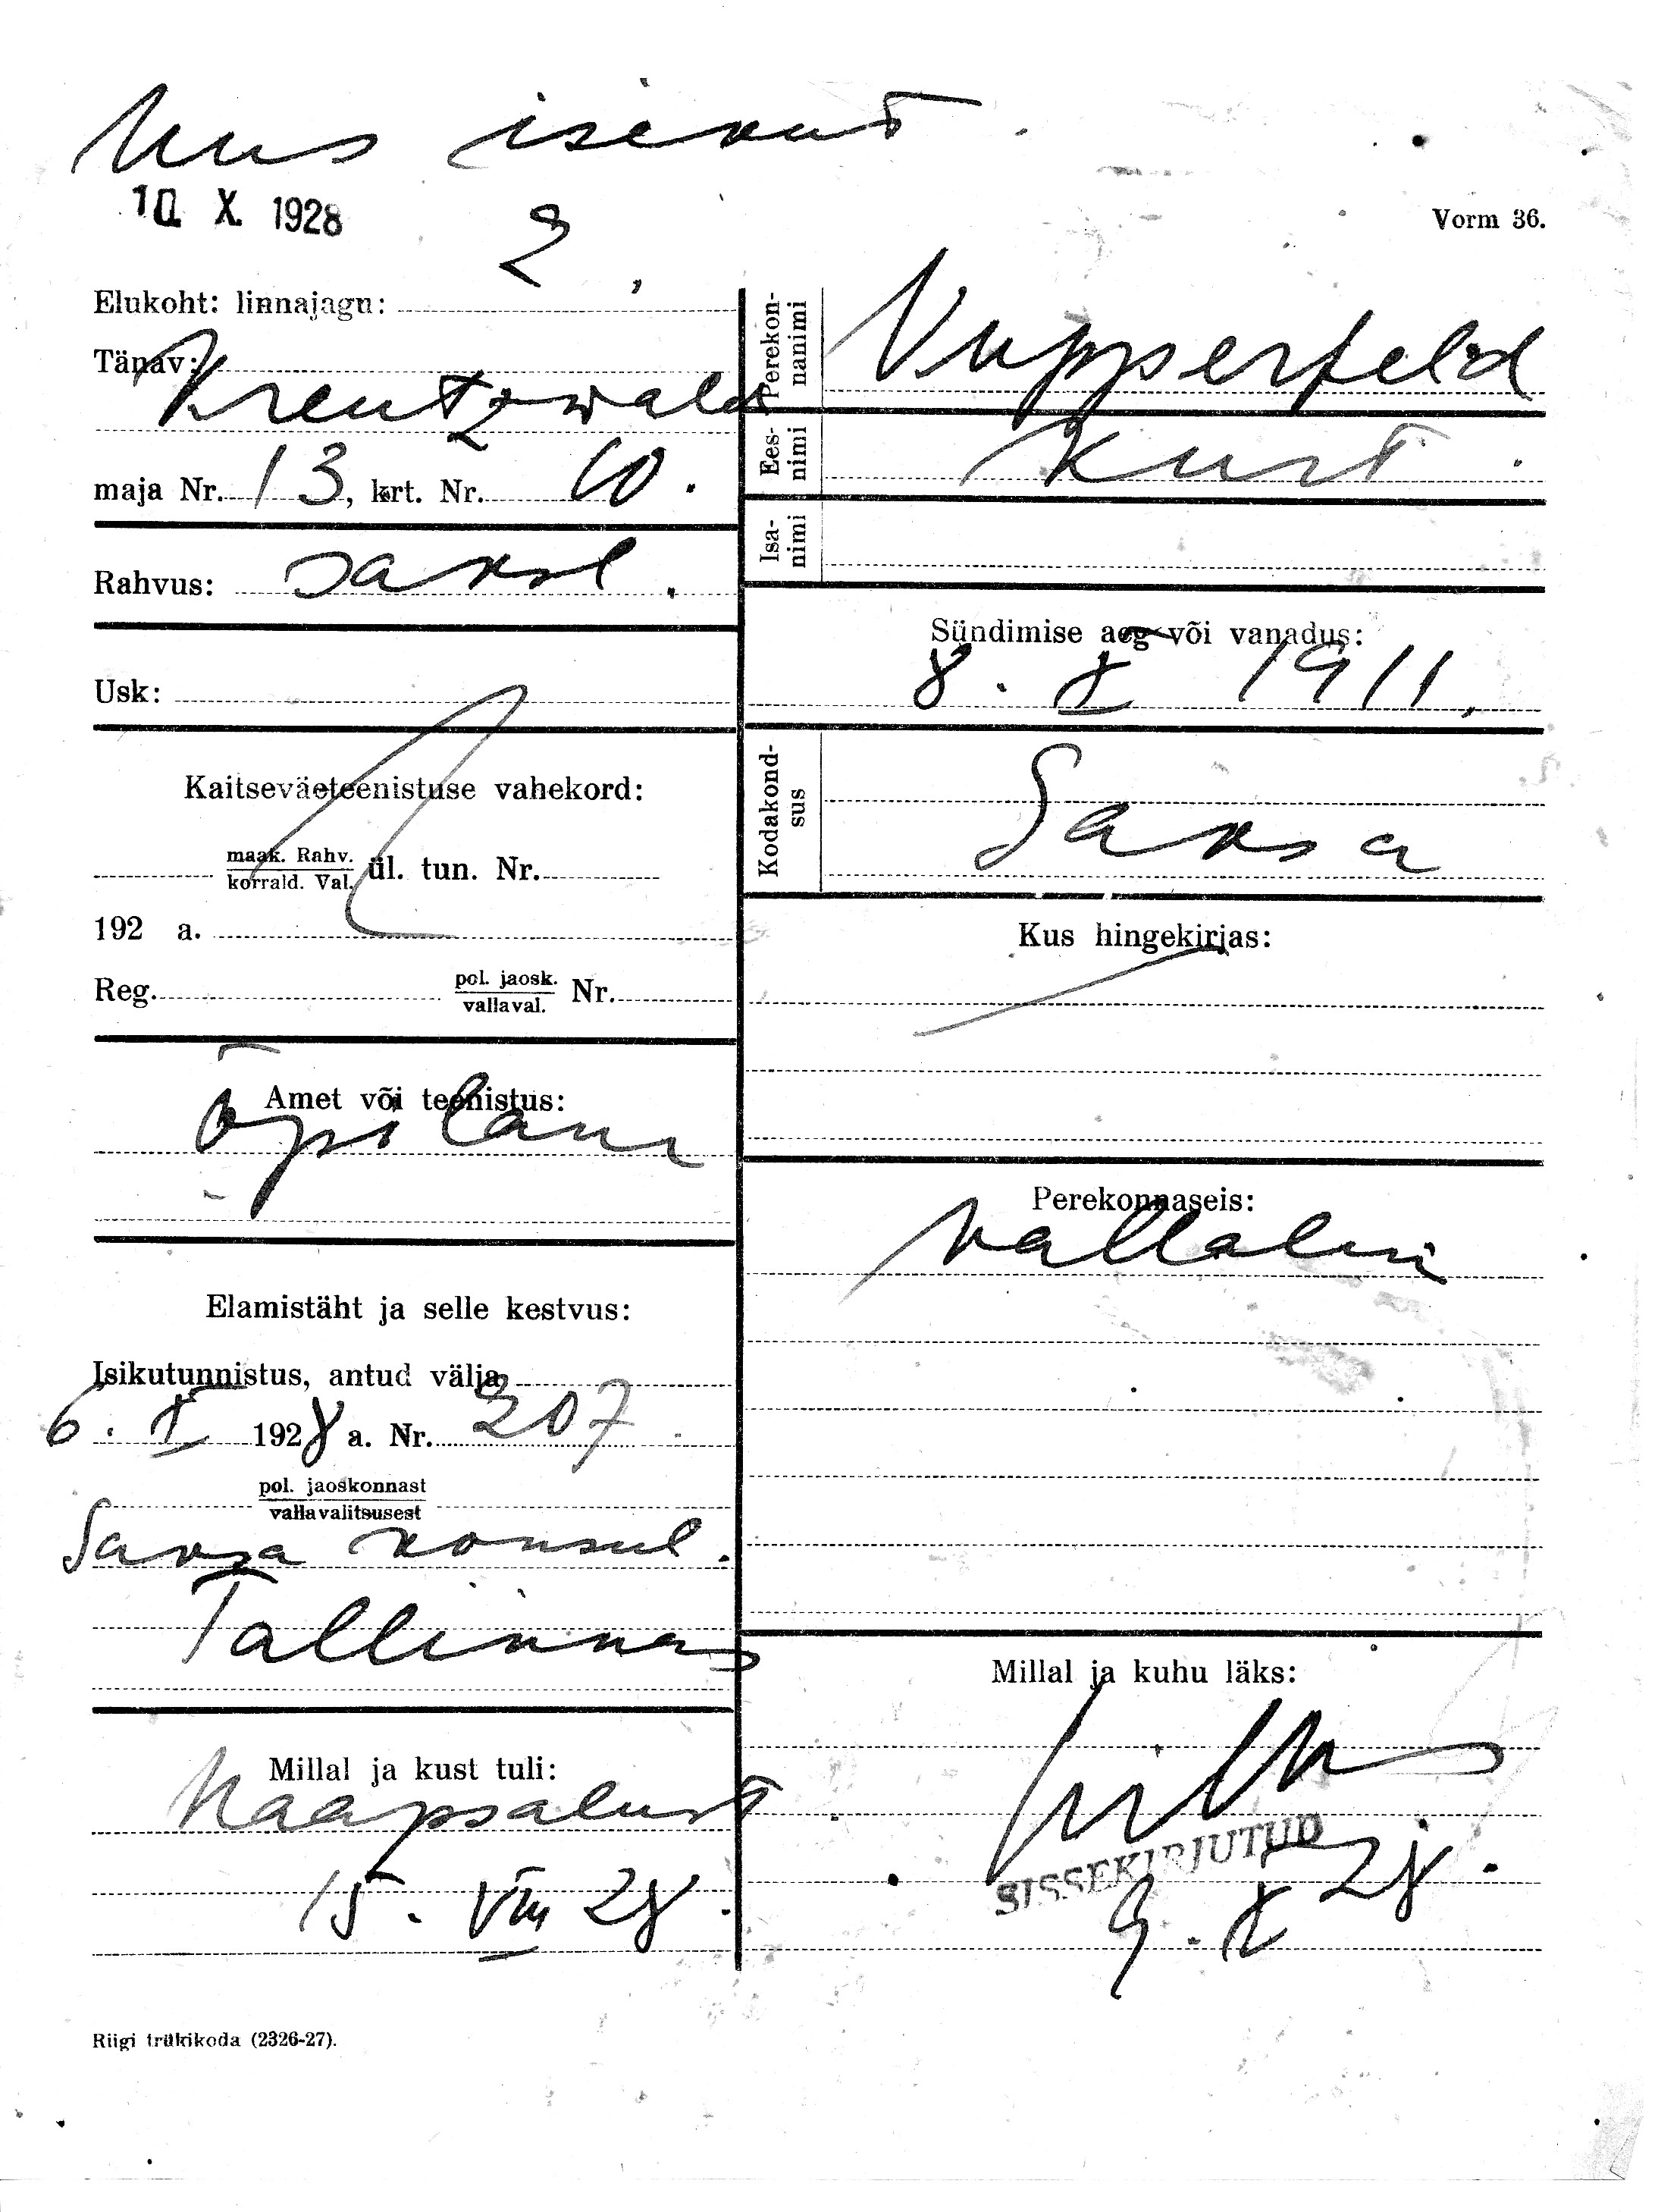 Uus isikut.
10. X. 1928
2.
Vorm 36.
Elukoht: linnajagu:
Tänav:
Kreutzwaldi
maja Nr. 13, krt. Nr. 10.
Rahvus: saksl.
Usk:
Kaitseväeteenistuse vahekord:
maak. Rahv.
korrald. Val. ül. tun. Nr.
192 a.
Reg. pol. jaosk.
vallaval. Nr.
Amet või teenistus:
Õpilane
Elamistäht ja selle kestvus:
Isikutunnistus, antud välja
6. X 1928 a. Nr. 207
pol. jaoskonnast
vallavalitsusest
Saksa konsul.
Tallinnas
Millal ja kust tuli:
Haapsalust
15. VIII 28.
Perekonnanimi
Vupperfeld
Eesnimi
Kurt.
Isanimi
Sündimise aeg või vanadus:
8. X 1911.
Kodakondsus
Saksa
Kus hingekirjas:
Perekonnaseis:
vallaline
Millal ja kuhu läks:
SISSEKIRJUTUD
9. X 28.
Riigi trükikoda (2326-27).